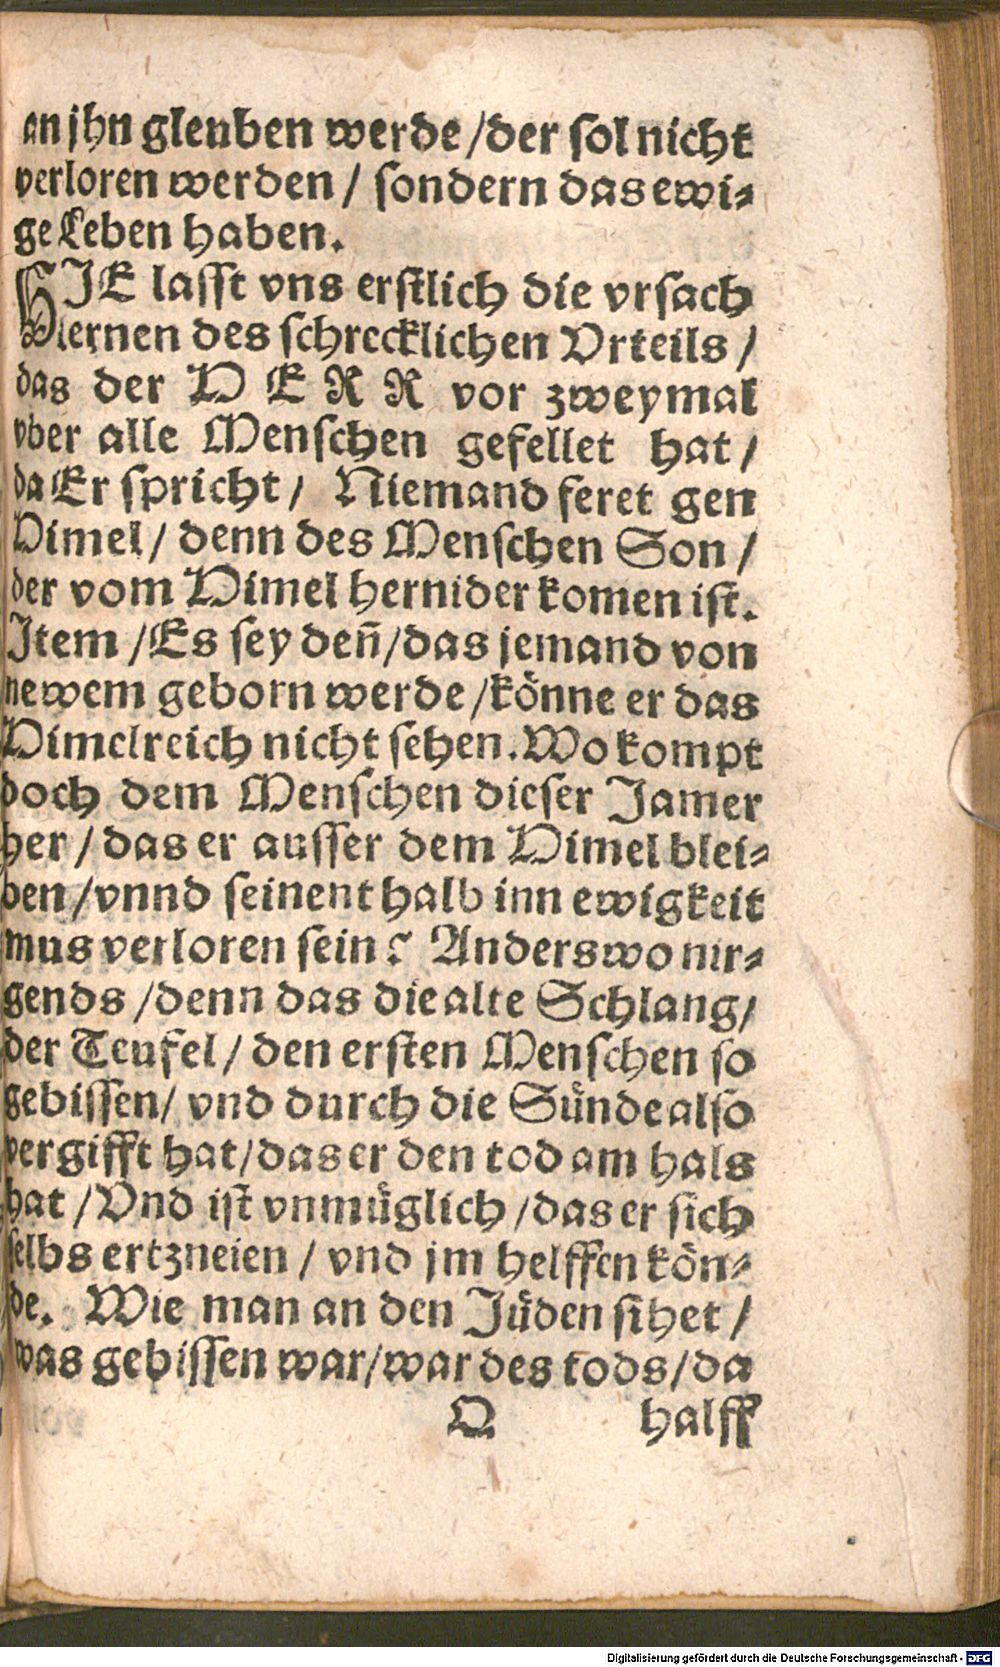 an jhn gleuben werde / der sol nicht
verloren werden / sondern das ewi⸗
ge Leben haben.
HIE lasst vns erstlich die vrsach
lernen des schrecklichen Vrteils /
das der HERR vor zweymal
vber alle Menschen gefellet hat /
da Er spricht / Niemand feret gen
Himel / denn des Menschen Son /
der vom Himel hernider komen ist.
Item / Es sey deñ / das jemand von
newem geborn werde / könne er das
Himelreich nicht sehen. Wo kompt
doch dem Menschen dieser Jamer
her / das er ausser dem Himel blei⸗
ben / vnnd seinenthalb inn ewigkeit
mus verloren sein? Anderswo nir⸗
gends / denn das die alte Schlang /
der Teufel / den ersten Menschen so
gebissen / vnd durch die Sünde also
vergifft hat / das er den tod am hals
hat / Vnd ist vnmüglich / das er sich
selbs ertzneien / vnd jm helffen kön⸗
de. Wie man an den Jüden sihet /
was gebissen war / war des tods / da
Q halff
Digitalisierung gefördert durch die Deutsche Forschungsgemeinschaft - DFG